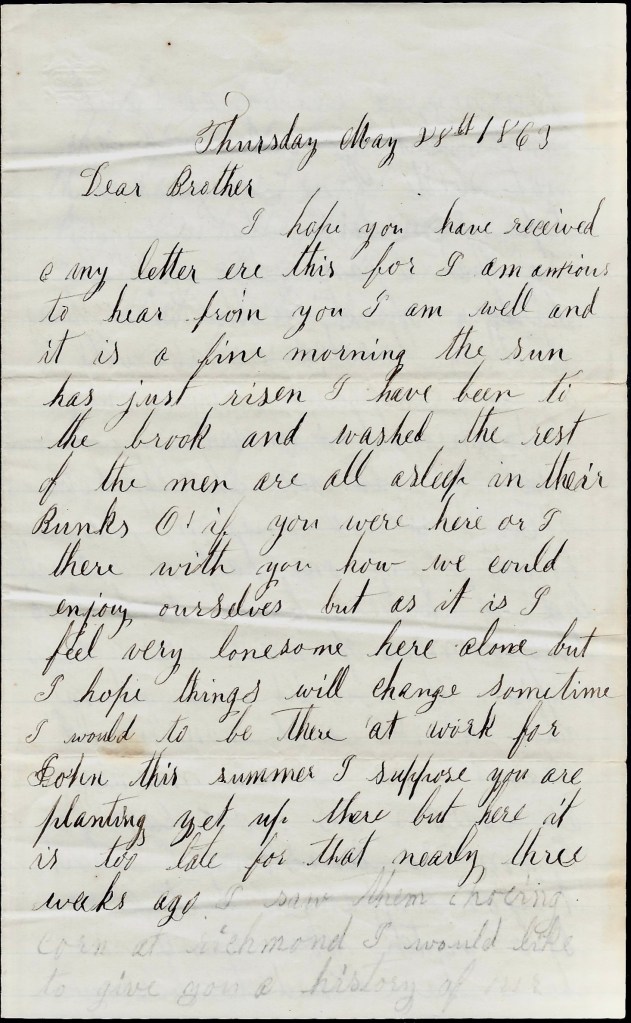 Thursday May 28th 1863
Dear Brother
I hope you have received
my letter ere this for I am anxious
to hear from you I am well and
it is a fine morning the sun
has just risen I have been to
the brook and washed the rest
of the men are all asleep in their
Bunks O! if you were here or I
there with you how we could
enjoy ourselves but as it is I
feel very lonesome here alone but
I hope things will change sometime
I would to be there at work for
John this summer I suppose you are
planting yet up there but here it
is too late for that nearly three
weeks ago I saw them
corn at richmond I would like
to give you a history of our